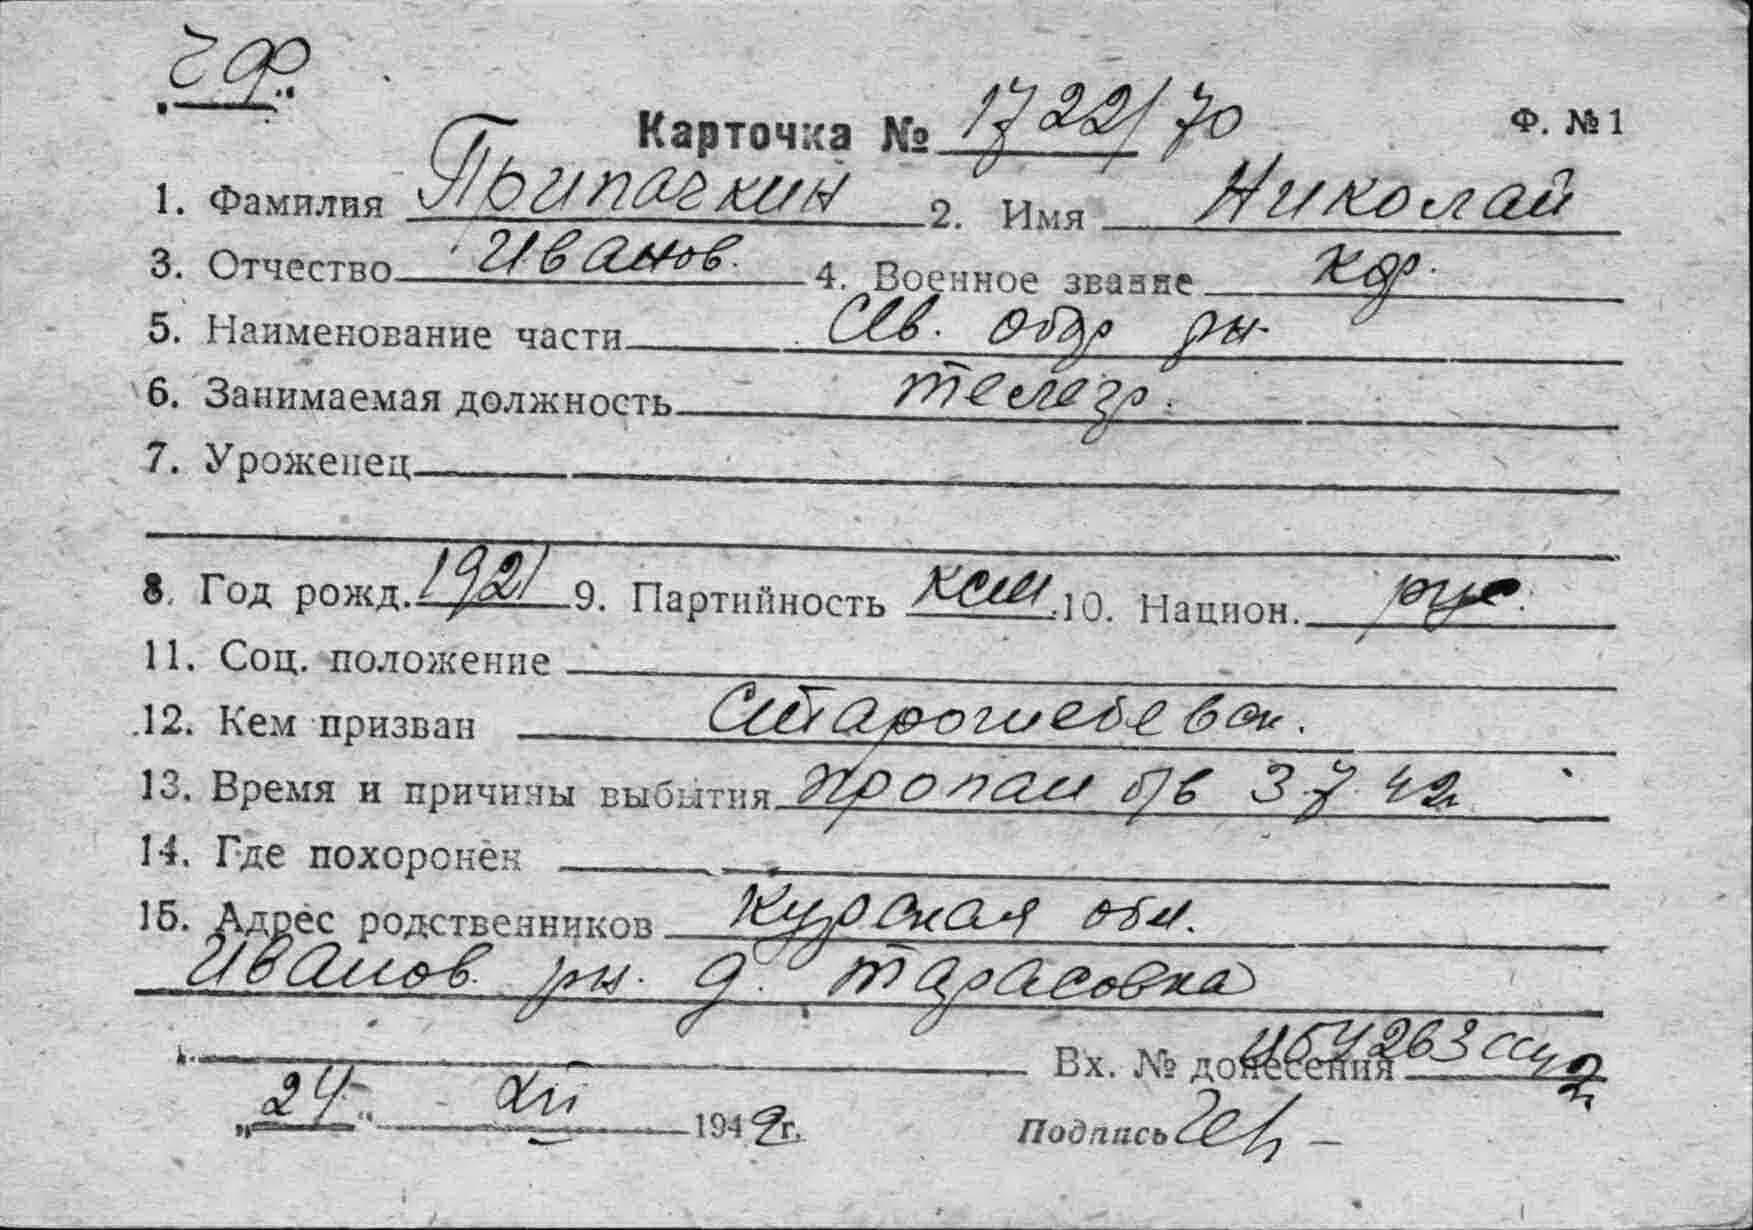 „ЧФ“
Карточка № 1722/70 Ф. №1
1. Фамилия Припачкин 2. Имя Николай
3. Отчество Иванов. 4. Военное звание кф.
5. Наименование части Сев. обор рн.
6. Занимаемая должность телегр.
7. Уроженец
8. Год рожд. 1921 9. Партийность ксм 10. Национ. рус.
11. Соц. положение
12. Кем призван
13. Время и причины выбытия пропал б/в 3.7.42г
14. Где похоронен
15. Адрес родственников Курская обл.
Иванов. рн. д. Тарасовка
Вх. № донесения
„24“ XII 1942г.
Подпись